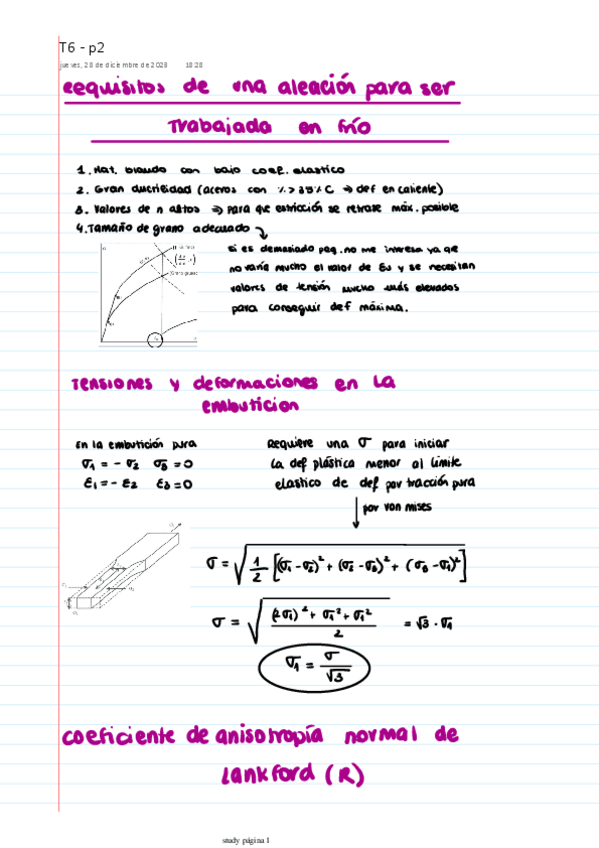 T6 - p2
jueves, 28 de diciembre de 2023 18:28
Requisitos de una aleación para ser
Trabajada en frío
1. Mat. blando con bajo coef. elastico
2. Gran ductilidad (aceros con %>35% C ⇒ def en caliente)
3. Valores de n altos ⇒ para que estricción se retrase máx. posible
4. Tamaño de grano adecuado
si es demasiado peq. no me interesa ya que
no varía mucho el valor de Eu y se necesitan
valores de tensión mucho más elevados
para conseguir def máxima.
(Grano grueso)
Tensiones y deformaciones en la
embuticion
En la embutición pura
σ1 = - σ2 σ3 = 0
ε1 = - ε2 ε3 = 0
Requiere una σ para iniciar
la def plástica menor al límite
elastico de def por tracción pura
por von mises
σ = √1/2 [(σ1 - σ2)² + (σ2 - σ3)² + (σ3 - σ1)²]
σ = √(2σ1)² + σ1² + σ1² / 2 = √3 · σ1
σ1 = σ / √3
Coeficiente de anisotropía normal de
Lankford (R)
study página 1